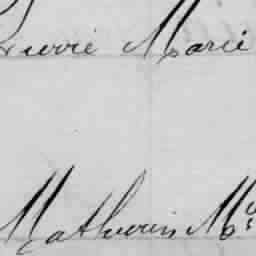 Pierre Marie
Mathurin M